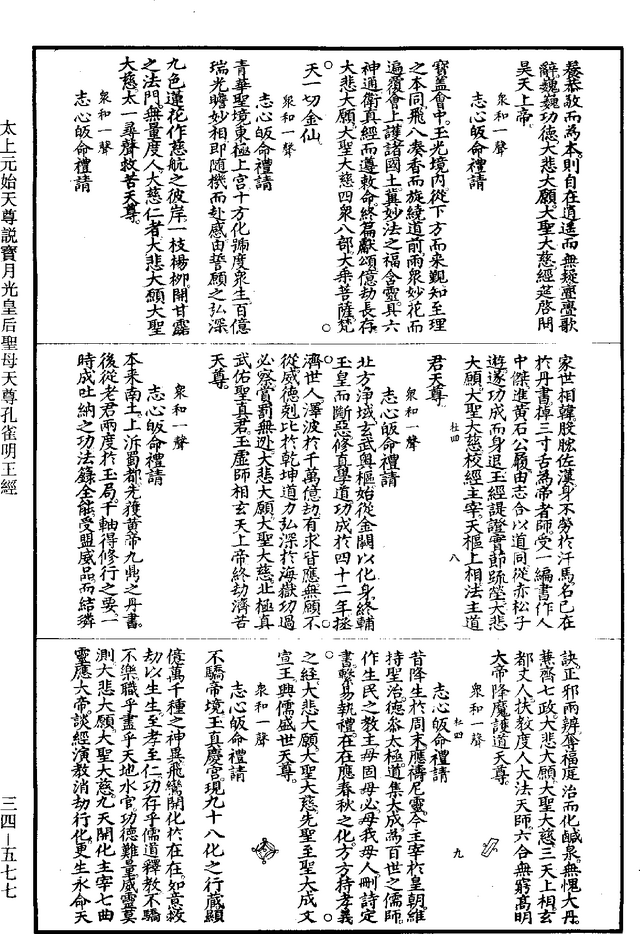 養恭敬而爲本則自在逍遙而無疑亹亹歌
辭巍巍功德大悲大願大聖大慈經筵啓開
昊天上帝
衆和一聲
志心皈命禮請
寶蓋會中玉光境內從下方而來覲知至理
之本同飛八奏香而旋繞道前雨衆妙花而
遍覆會上護諸國土冀妙法之福含靈具六
神通衛真經而遵敕命終篇獻頌億劫長存
大悲大願大聖大慈四衆八部大乘菩薩梵
天一切金仙
衆和一聲
志心皈命禮請
青華聖境東極上宮十方化號度衆生百億
瑞光瞻妙相即隨機而赴感由誓願之弘深
九色蓮花作慈航之彼岸一枝楊柳開甘露
之法門無量度人大慈仁者大悲大願大聖
大慈太一尋聲救苦天尊
衆和一聲
志心皈命禮請
家世相韓股肱佐漢身不勞於汗馬名已在
於丹書掉三寸舌爲帝者師受一編書作人
中傑進黃石公履由志合以道同從赤松子
遊遂功成而身退玉經諟證實節疏瑩大悲
大願大聖大慈校經主宰天樞上相法主道
君天尊
杜四
八
衆和一聲
志心皈命禮請
北方淨域玄武輿樞始從金闕以化身終輔
玉皇而斷惡修真學道功成於四十二年拯
濟世人澤波於千萬億劫有求皆應無願不
從威德剋比於乾坤道力弘深於海嶽功過
必察賞罰無逃大悲大願大聖大慈北極真
武佑聖真君玉虛師相玄天上帝終劫濟苦
天尊
衆和一聲
志心皈命禮請
本來南土上泝蜀都先獲黃帝九鼎之丹書
後從老君兩度於玉局千軸得修行之要一
時成吐納之功法籙全能受盟威品而結璘
訣正邪兩辨奪福庭治而化鹹泉無愧大丹
兼齊七政大悲大願大聖大慈三天上相玄
都丈人扶教度人大法天師六合無窮高明
大帝降魔護道天尊
衆和一聲
杜四
九
志心皈命禮請
昔降生於周末應禱尼靈今主宰於皇朝維
持聖治德叅太極道集大成爲百世之儒師
作生民之教主毋固毋必毋我毋人刪詩定
書繫易執禮在在應春秋之化方方持孝義
之經大悲大願大聖大慈先聖至聖大成文
宣王興儒盛世天尊
衆和一聲
志心皈命禮請
不驕帝境玉真慶宮現九十八化之行藏顯
億萬千種之神異飛鸞開化於在在如意救
劫以生生至孝至仁功存乎儒道釋教不驕
不樂職乎盡乎天地水官功德難量威靈莫
測大悲大願大聖大慈九天開化主宰七曲
靈應大帝談經演教消劫行化更生永命天
太上元始天尊説寶月光皇后聖母天尊孔雀明王經
三四—五七七